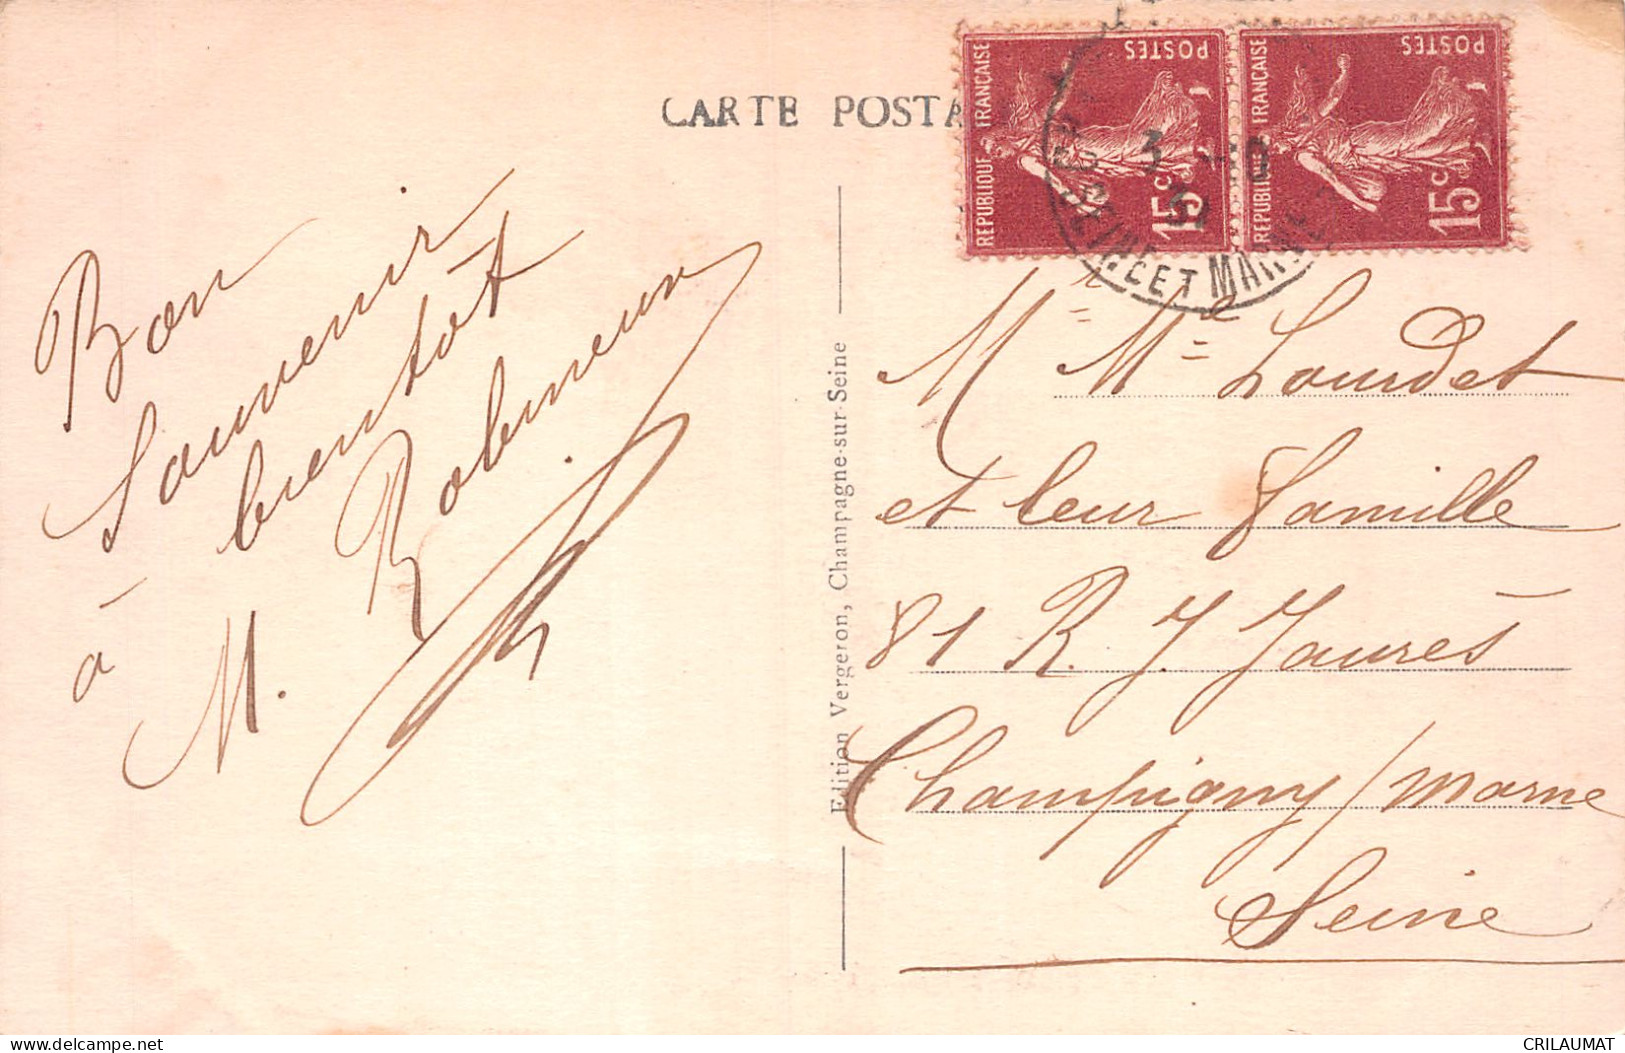 CARTE POSTA
REPUBLIQUE FRANÇAISE
POSTES
15c
REPUBLIQUE FRANÇAISE
POSTES
15c
SEINE ET MARNE
Bon
Souvenir
à bientôt
M.
Edition Vergeron, Champagne-sur-Seine
Mr Me Lourdet
et leur Famille
81 R. J. Jaurès
Champigny/Marne
Seine
delcampe.net
CRILAUMAT